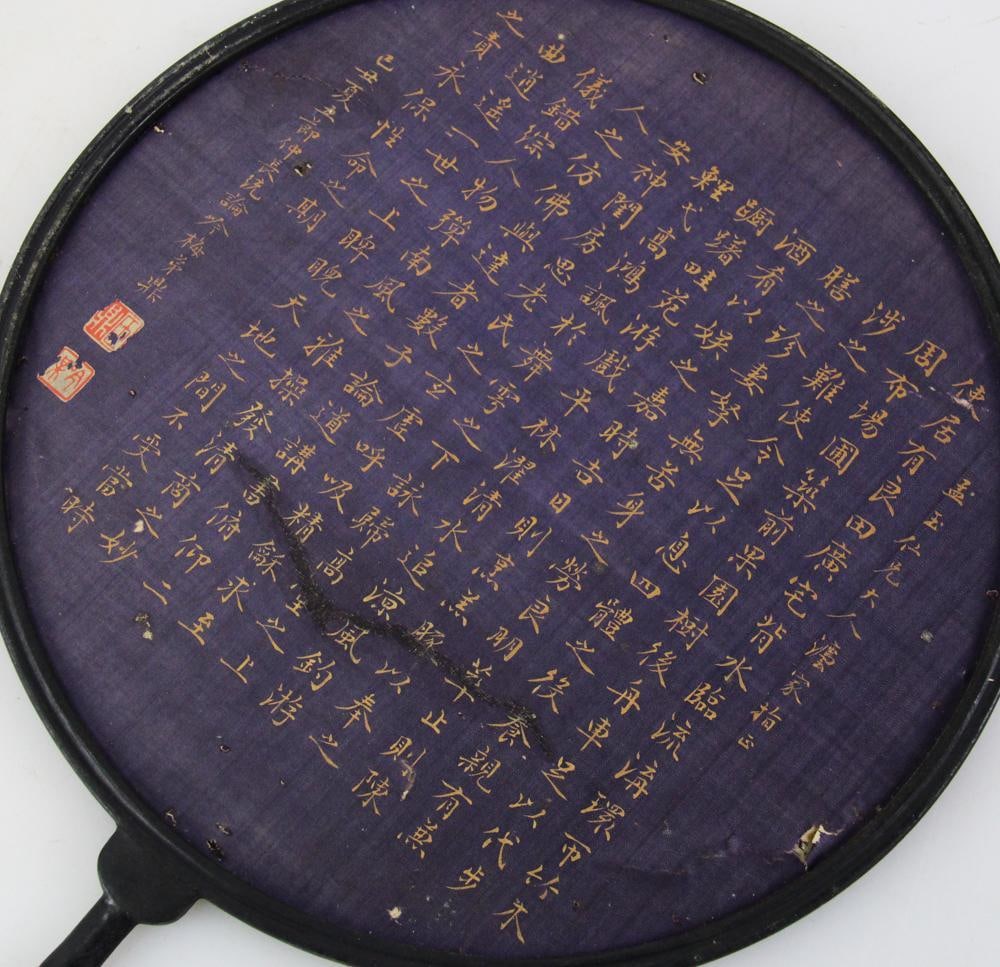 孟玉仁兄大人灋家指正
使居有良田廣宅背水臨流溝環帀竹木
周布場圃築前果園樹後舟車足以代步
涉之難使令足以息四體之役養親有兼
膳之珍妻孥無苦身之勞良朋萃止則陳
酒肴以娛之嘉時吉日則烹羔豚以奉之
躕躇畦苑游戲平林濯清水追涼風釣游
鯉弋高鴻諷於舞雩之下詠歸高之上
安神閨房思老氏之玄虛呼吸精龢求至
人之仿佛與達者數子論道講書俯仰二
儀錯綜人物彈南風之雅操發清商之妙
曲逍遙一世之上睥睨天地之間不受當時
之責永保性命之期
己丑夏五節仲長統論 梅 鼎